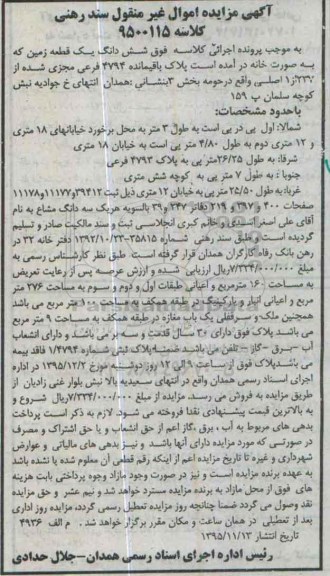 آگهی مزایده اموال غیر منقول سند رهنی
کلاسه ۹۵۰۰۱۱۵
به موجب پرونده اجرائی کلاسه فوق شش دانگ یک قطعه زمین که
به صورت خانه در آمده است پلاک باقیمانده ۴۷۹۴ فرعی مجزی شده از
اصلی واقع درحومه بخش ۳بنشانی :همدان انتهای خ جوادیه نبش
کوچه سلمان پ ۱۵۹
باحدود مشخصات:
شمالا: اول پی در پی است به طول ۳ متر به محل برخورد خیابانهای ۱۸ متری
و ۱۲ متری دوم به طول ۴/۸۰ متر پی است به خیابان ۱۸ متری
شرقا: به طول ۲۶/۲۵متر پی به پلاک ۴۷۹۳ فرعی
جنوبا : به طول ۷ متر پی به کوچه شش متری
غربا: به طول ۲۵/۵۰ متر پی به خیابان ۱۲ متری ذیل ثبت ۳۹۴۱۲و۱۱۱۷۷و۱۱۱۷۸
صفحات ۴۰۰ و ۳۹۷ و ۲۱۹ دفاتر ۲۴۷ و ۳۹ بالسویه هریک سه دانگ مشاع به نام
آقای علی اصغر اسدی و خانم کبری انجلاسی ثبت و سند مالکیت صادر و تسلیم
گردیده است و طبق سند رهنی شماره ۳۵۸۱۵-۱۳۹۲/۱۰/۲۳ دفتر خانه ۳۲ در
رهن بانک رفاه کارگران همدان قرار گرفته است. طبق نظر کارشناس رسمی به
مبلغ ۷/۳۳۴/۰۰۰/۰۰۰ریال ارزیابی شده و ارزش عرصه پس از رعایت تعریض
به مساحت ۱۶۰ مترمربع و اعیانی طبقات اول و دوم و سوم به مساحت ۲۷۶ متر
مربع و اعیانی انبار و پارکینگ در طبقه همکف به مساحت ۱۰۰ متر مربع می باشد
همچنین ملک و سرقفلی یک باب مغازه در طبقه همکف به مساحت ۹ متر مربع
می باشد پلاک فوق دارای ۳۰ سال قدمت و سه بر می باشد و دارای انشعاب
آب -برق -گاز - تلفن می باشد ضمنا پلاک ثبتی شماره ۱/۴۷۹۴ فاقد بیمه
می باشدپلاک فوق از ساعت ۹ الی ۱۲ روز دوشنبه مورخ ۱۳۹۵/۱۲/۲ در اداره
اجرای اسناد رسمی همدان واقع در انتهای سعیدیه بالا نبش بلوار غنی زادیان از
طریق مزایده به فروش می رسد. مزایده از مبلغ ۷/۳۳۴/۰۰۰/۰۰۰ریال شروع و
به بالاترین قیمت پیشنهادی نقدا فروخته می شود. لازم به ذکر است پرداخت
بدهی های مربوط به آب ، برق ،گاز اعم از حق انشعاب و یا حق اشتراک و مصرف
در صورتی که مورد مزایده دارای آنها باشد و نیز بدهی های مالیاتی و عوارض
شهرداری و غیره تا تاریخ مزایده اعم از اینکه رقم قطعی آن معلوم شده یا نشده باشد
به عهده برنده مزایده است و نیز در صورت وجود مازاد وجوه پرداختی بابت هزینه
های فوق از محل مازاد به برنده مزایده مسترد خواهد شد و نیم عشر و حق مزایده
نقد وصول می گردد ضمنا چنانچه روز مزایده تعطیل رسمی گردد، مزایده روز اداری
بعد از تعطیلی در همان ساعت و مکان مقرر برگزار خواهد شد. م الف ۴۹۳۶
تاریخ انتشار ۱۳۹۵/۱۱/۱۳
رئیس اداره اجرای اسناد رسمی همدان-جلال حدادی